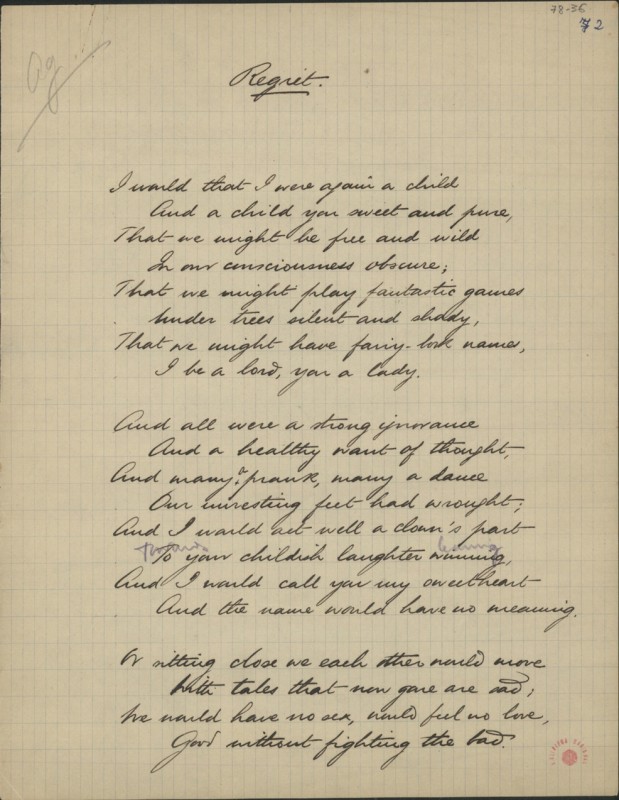 78-36
72
Ag...
Regret.
I would that I were again a child
And a child you sweet and pure,
That we might be free and wild
In our consciousness obscure;
That we might play fantastic games
Under trees silent and shady,
That we might have fairy-book names,
I be a lord, you a lady.
And all were a strong ignorance
And a healthy want of thought,
And many a prank, many a dance
Our unresting feet had wrought;
And I would act well a clown's part
To your childish laughter winning,
And I would call you my sweetheart
And the name would have no meaning.
Or sitting close we each other would move
With tales that now gone are sad;
We would have no sex, would feel no love,
Good without fighting the bad.